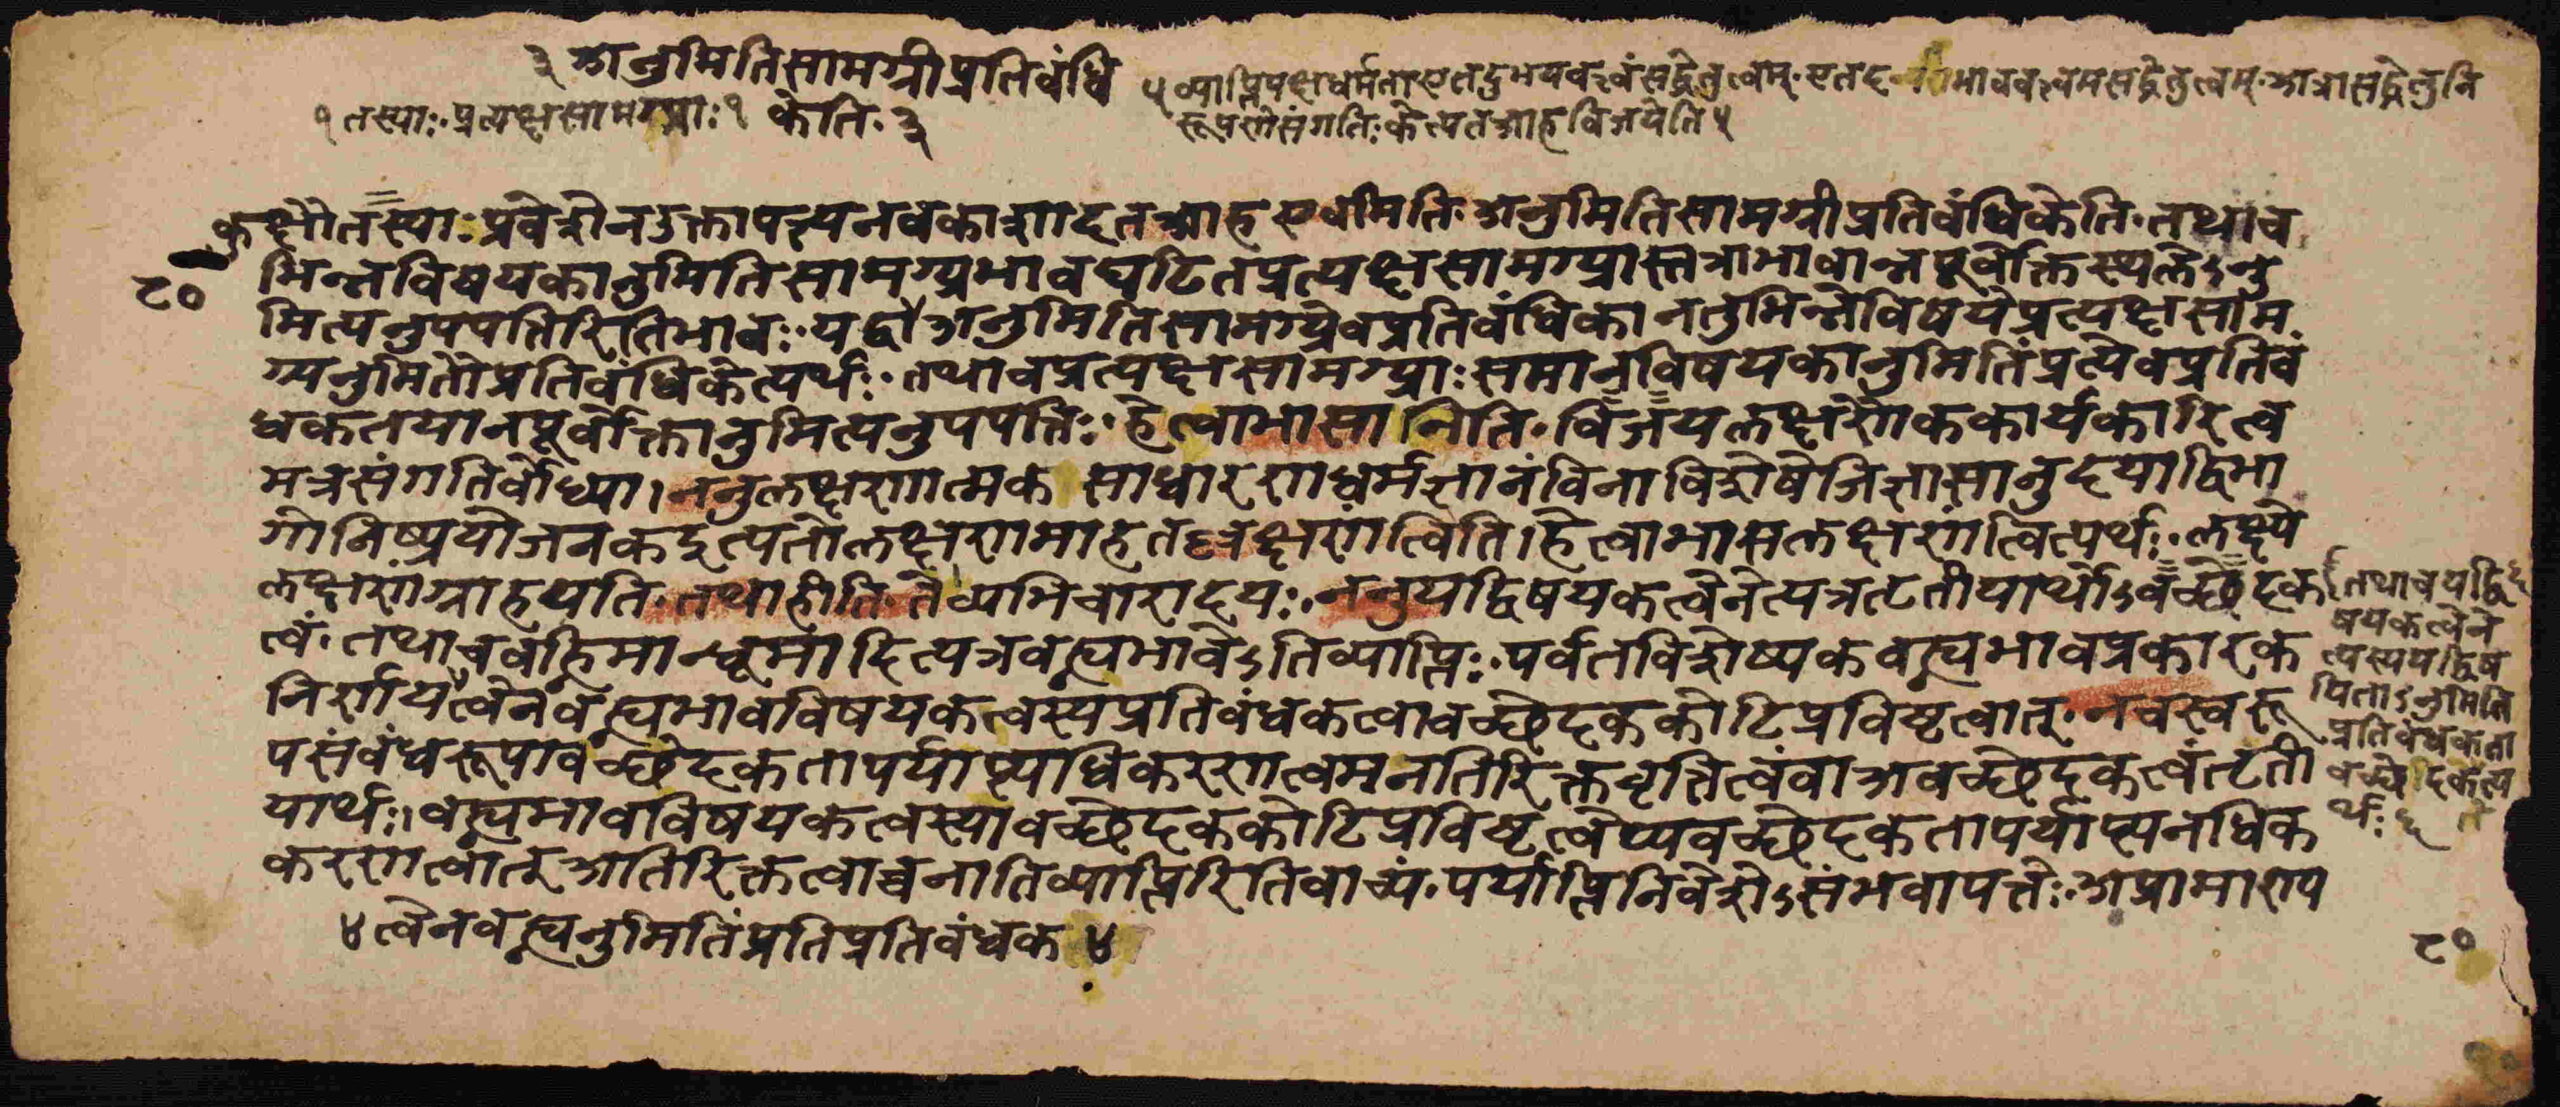 ३ अनुमितिसामग्रीप्रतिबंधि
५ व्याप्तिपक्षधर्मता एतदुभयवत्त्वं सद्धेतुत्वम्· एतद भाववत्त्वमसद्धेतुत्वम्· अत्रासद्धेतुनि
१ तस्याः· प्रत्यक्षसामग्र्याः १ केति· ३
रूपणे संगतिः केत्यत आह विजयेति ५
कुक्षौ तस्याः प्रवेशेन उक्तापत्त्यनवकाशादत आह एवमिति· अनुमितिसामग्री प्रतिबंधिकेति· तथा च
८० भिन्नविषयकानुमितिसामग्र्यभावघटितप्रत्यक्षसामग्र्यास्तत्राभावान्न पूर्वोक्तस्थलेऽनु
मित्यनुपपत्तिरिति भावः· यद्वा अनुमितिसामग्र्येव प्रतिबंधिका न तु भिन्नविषये प्रत्यक्षसाम
ग्र्यनुमितौ प्रतिबंधिकेत्यर्थः· तथा च प्रत्यक्षसामग्र्याः समानविषयकानुमितिं प्रत्येव प्रतिबं
धकतया न पूर्वोक्तानुमित्यनुपपत्तिः· हेत्वाभासानिति· विजयलक्षणैककार्यकारित्व
मत्र संगतिर्बोध्या। ननु लक्षणात्मक साधारणधर्मज्ञानं विना विशेषजिज्ञासानुदयाद्विभा
गो निष्प्रयोजनक इत्यतो लक्षणमाह तल्लक्षणं त्विति। हेत्वाभासलक्षणं त्वित्यर्थः· लक्ष्ये
लक्षणं ग्राहयति· तथाहीति· ते व्यभिचारादयः· ननु यद्विषयकत्वेनेत्यत्र तृतीयार्थोऽवच्छेदक
त्वं· तथा च वह्निमान् धूमादित्यत्र वह्न्यभावेऽतिव्याप्तिः· पर्वतविशेष्यकवह्न्यभावप्रकारक
निर्णयत्वेन वह्न्यभावविषयकत्वस्य प्रतिबंधकत्वावच्छेदककोटिप्रविष्टत्वात्· न च स्वरू
पसंबंधरूपावच्छेदकतापर्याप्त्यधिकरणत्वमनतिरिक्तवृत्तित्वं वा अवच्छेदकत्वं तृती
यार्थः। वह्न्यभावविषयकत्वस्यावच्छेदककोटिप्रविष्टत्वेप्यवच्छेदकतापर्याप्त्यनधिक
करणत्वात् अतिरिक्तत्वाच्च नातिव्याप्तिरिति वाच्यं· पर्याप्तिनिवेशेऽसंभवापत्तेः· अप्रामाण्य
तथा च यद्वि
षयकत्वेने
त्यस्य यद्विष
यिताऽनुमिति
प्रतिबंधकता
वच्छेदिकेत्य
र्थः ६
४ त्वेन वह्न्यनुमितिं प्रति प्रतिबंधक ४
८०